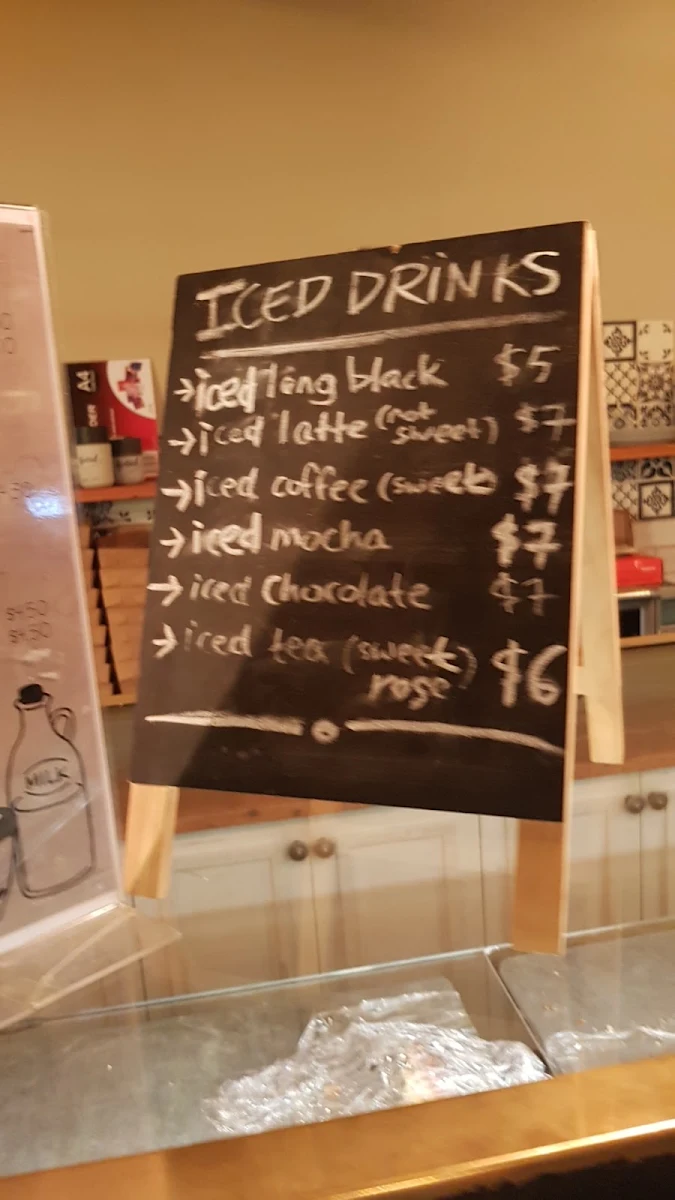 ICED DRINKS
→iced long black $5
→iced latte (not sweet) $7
→iced coffee (sweet $7
→iced mocha $7
→iced Chocolate $7
→iced tea (sweet) $6
rose
$4.50
$4.50
MILK
A4